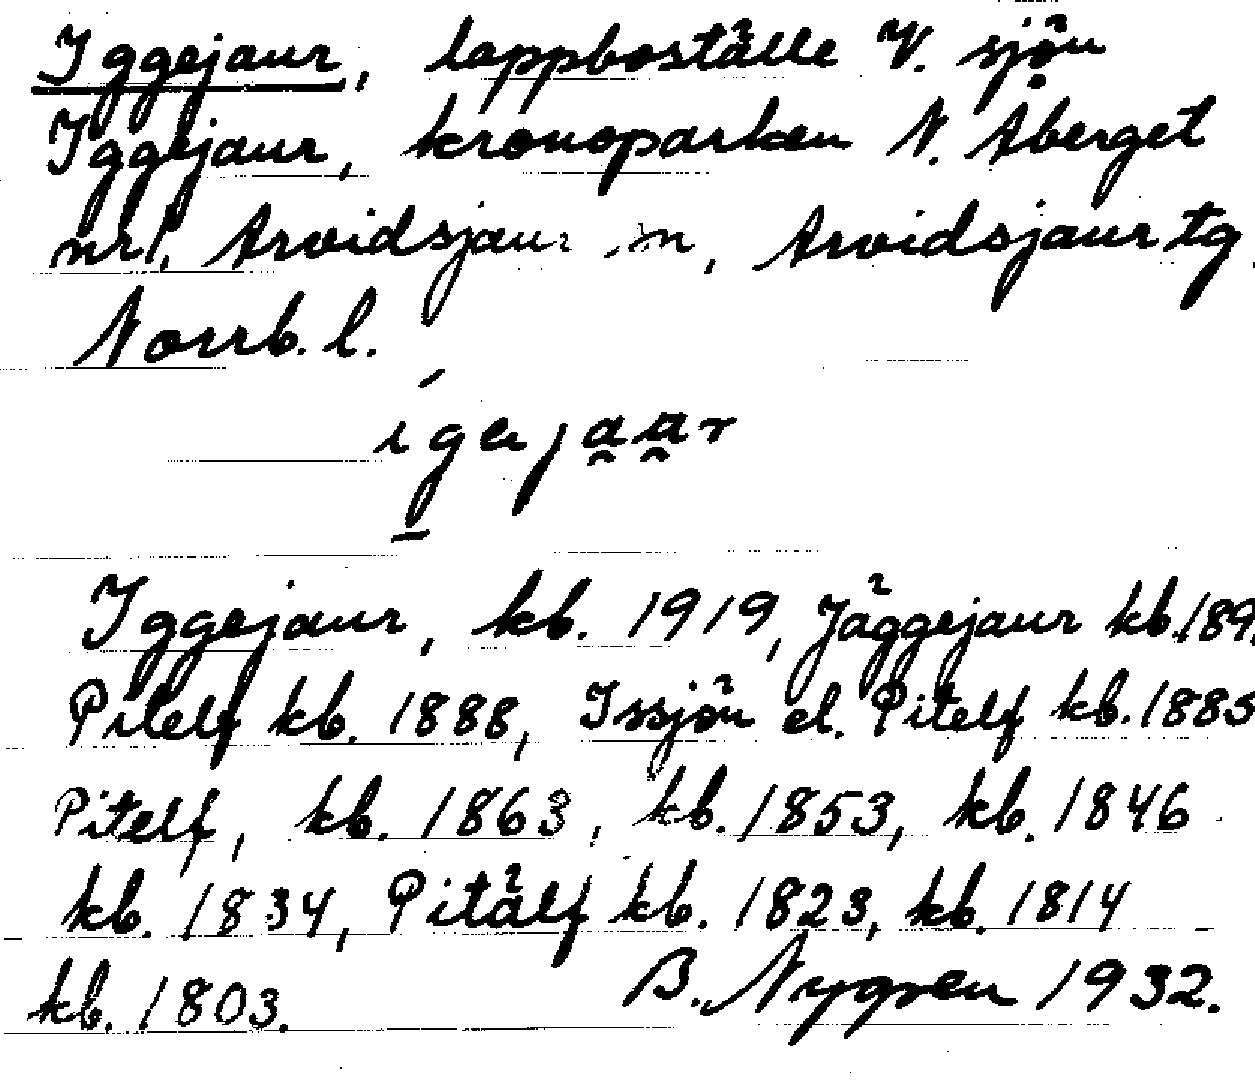 Iggejaur, lappboställe V. sjön
Iggejaur, kronoparken N. Åberget
nr 1, Arvidsjaur sn, Arvidsjaur tg.
Norrb. l.
Iggejaur, kb. 1919, Jäggejaur kb. 189
Pitelf kb. 1888, Issjön el. Pitelf kb. 1885
Pitelf, kb. 1863, kb. 1853, kb. 1846
kb. 1834, Pitälf kb. 1823, kb. 1814
kb. 1803. B. Nygren 1932.